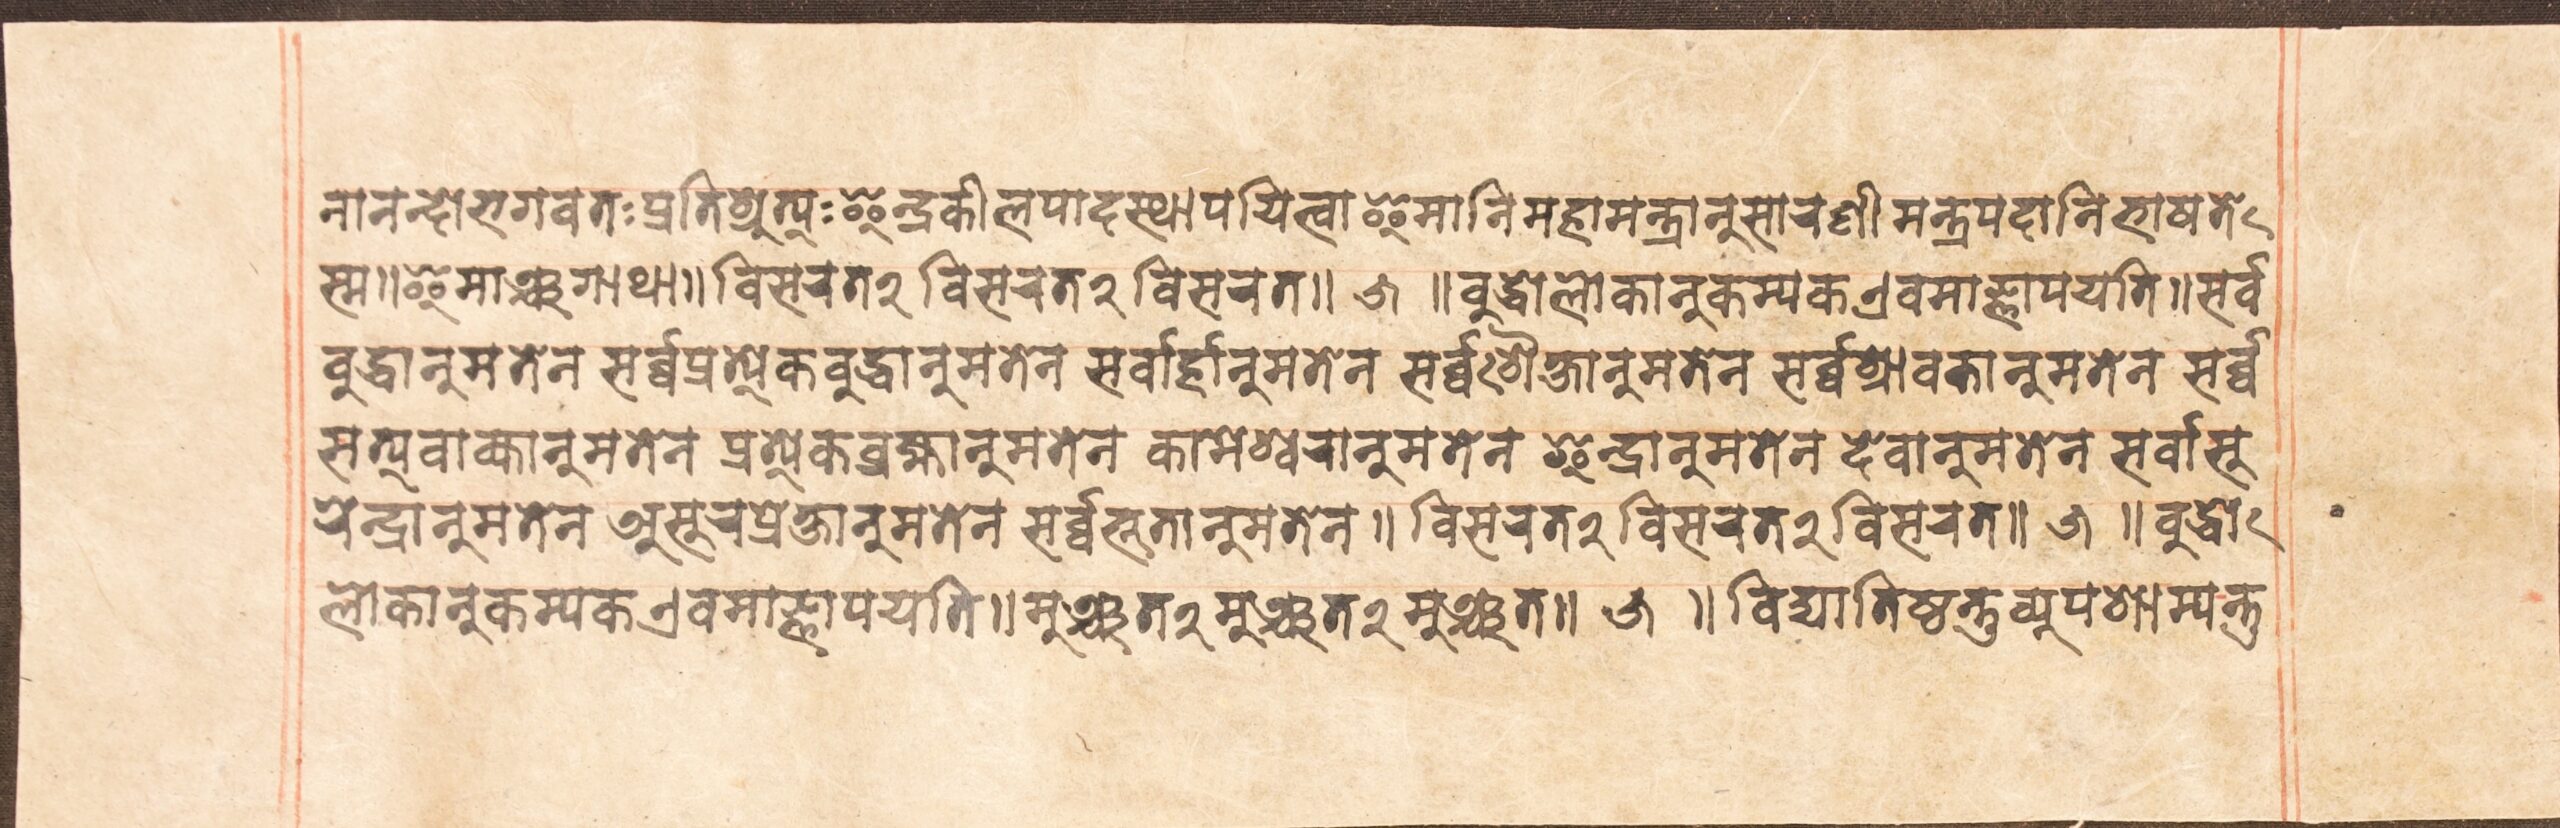 नानन्दोभगवतःप्रतिश्रुत्यःइन्द्रकीलपादस्थापयित्वाइमानिमहामन्त्रानुसारणीमन्त्रपदानिभाषते
स्म॥इमाञ्चगाथा॥विसरत२ विसरत२ विसरत॥ ७ ॥बुद्धोलोकानुकम्पकएवमाज्ञापयति॥सर्व
बुद्धानुमतेन सर्ब्बप्रत्येकबुद्धानुमतेन सर्वार्हानुमतेन सर्ब्बशैक्षानुमतेन सर्ब्बश्रावकानुमतेन सर्ब्ब
सत्यवाक्यानुमतेन प्रत्येकब्रह्मानुमतेन कामेश्वरानुमतेन इन्द्रानुमतेन देवानुमतेन सर्वासु
रेन्द्रानुमतेन असुरप्रेक्षानुमतेन सर्ब्बभूतानुमतेन॥ विसरत२ विसरत२ विसरत॥ ७ ॥बुद्धो
लोकानुकम्पकएवमाज्ञापयति॥मुञ्चत२मुञ्चत२मुञ्चत॥ ७ ॥विद्यातिष्ठन्तुव्युपशाम्यन्तु